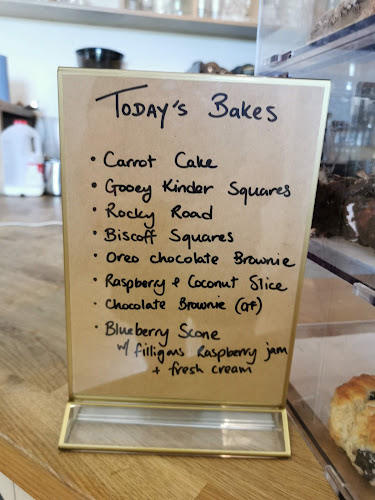 Today's Bakes
• Carrot Cake
• Gooey Kinder Squares
• Rocky Road
• Biscoff Squares
• Oreo chocolate Brownie
• Raspberry & Coconut Slice
• Chocolate Brownie (GF)
• Blueberry Scone
w/ filligans Raspberry jam
+ fresh cream